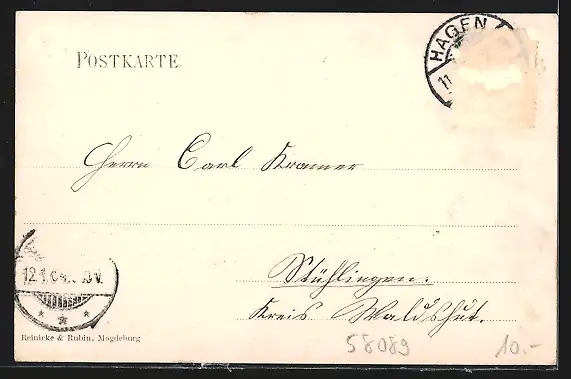 HAGEN
11
POSTKARTE
Herrn Carl Kramer
12.1.04. 0V.
Stühlingen.
Kreis Waldshut.
Reinicke & Rubin, Magdeburg
58089
10.-